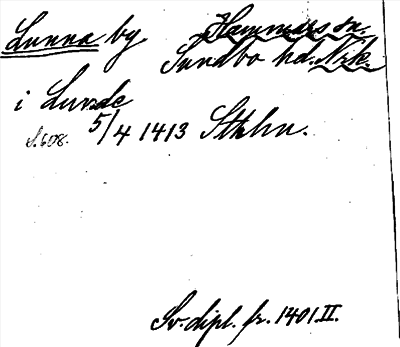 Lunna by Hammars sn.
Sundbo hd. Nrk.
i Lunde
S. 608. 5/4 1413 Sthlm.
Sv. dipl. fr. 1401. II.